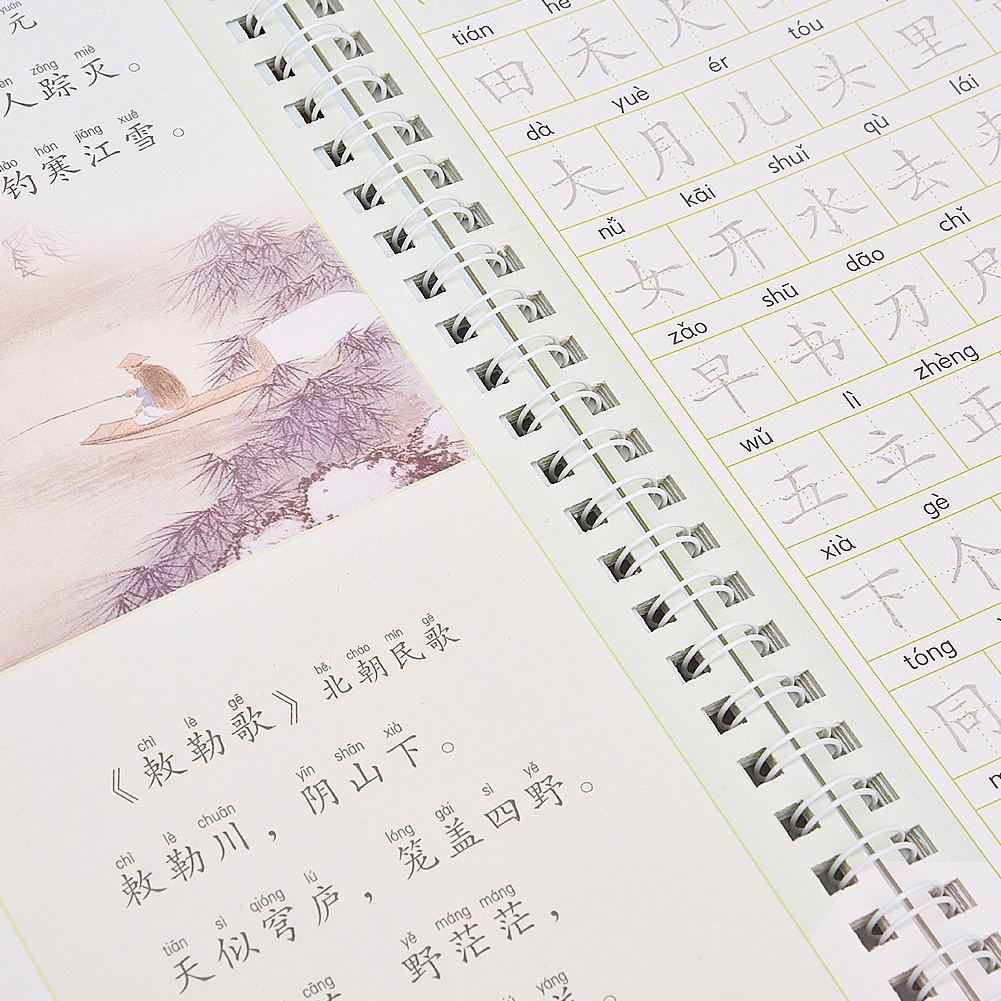 yuán
元
zōng miè
人踪灭。
hán jiāng xuě
钓寒江雪。
chì lè gē cháo mín gē
《敕勒歌》北朝民歌
chì lè chuān yīn shān xià
敕勒川，阴山下。
tiān sì qióng lú lóng gài sì yě
天似穹庐，笼盖四野。
cāng yě máng máng
野茫茫，
yáng
tián hé
田禾火
dà yuè ér tóu
大月儿头里
nǚ kāi shuǐ qù lái
女开水去来
zǎo shū dāo chǐ
早书刀尺
wǔ lì zhèng
五立正
xià gè
下个
tóng
同